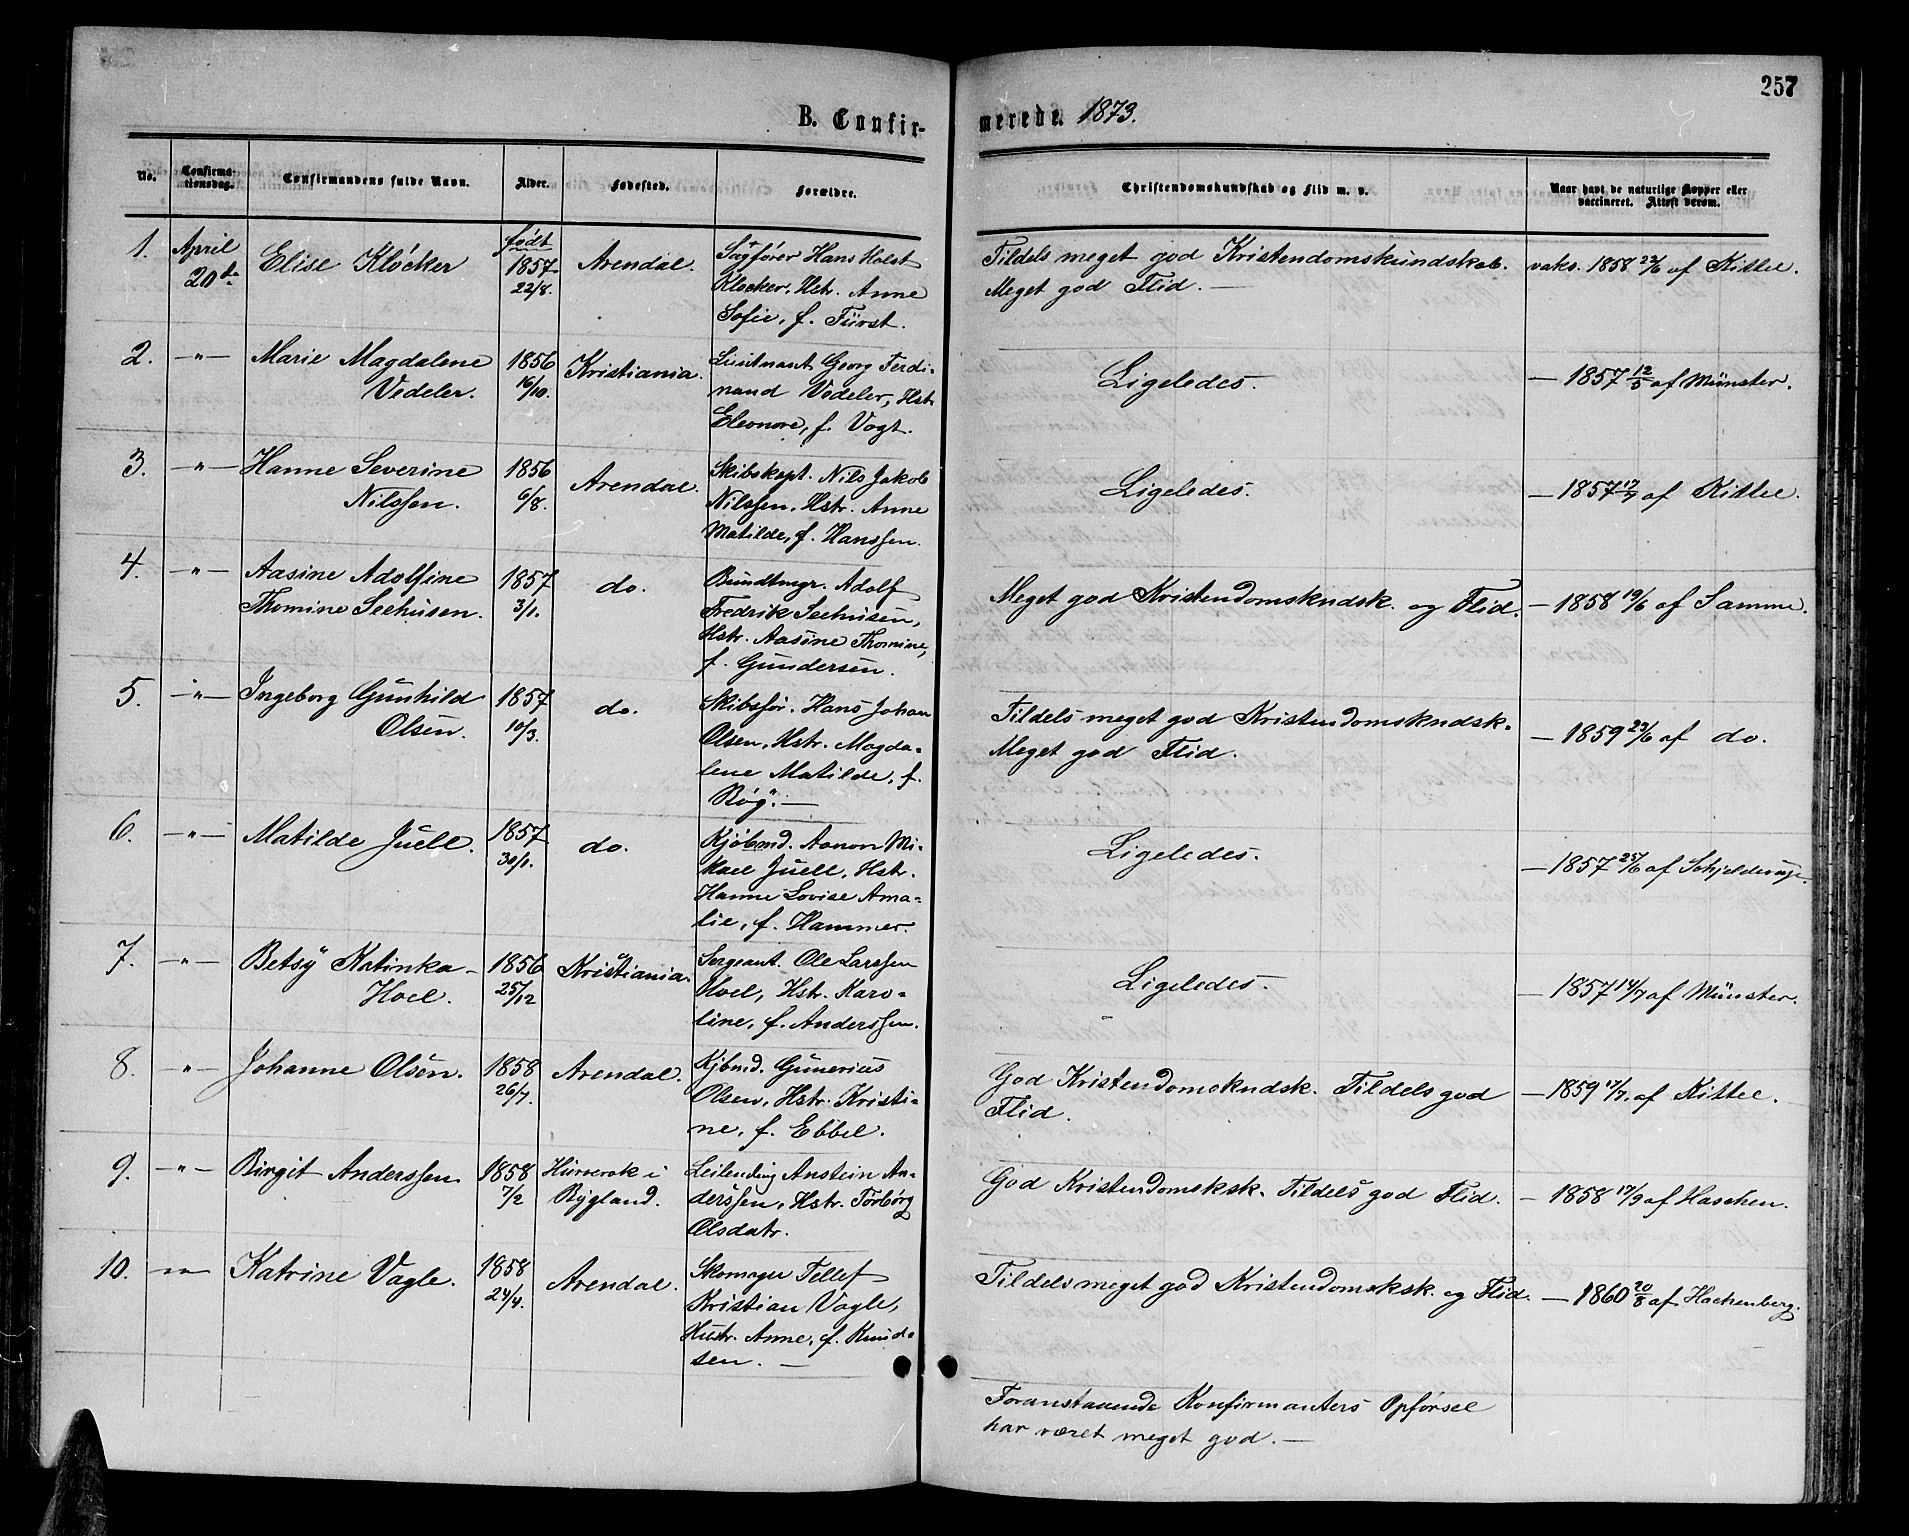 257
B. Confirmerede. 1873.
No. Confirmationsdag. Confirmandens fulde Navn. Alder. Fødested. Forældre. Christendomskundskab og Flid m. v. Naar havt de naturlige Kopper eller vaccineret. Attest derom.
1. April 20de Elise Klöcker født 1857 22/8. Arendal. Sagfører Hans Holst
Klocker, Hstr. Anne
Sofie, f. Fürst.
Tildels meget god Kristendomskundskab.
Meget god Flid. —
vaks. 1858 22/6 af Kittel.
2. —„— Marie Magdalene
Vedeler. 1856 16/10. Kristiania. Lieutnant Georg Ferdi-
nand Vedeler, Hstr.
Eleonore, f. Vogt.
Ligeledes.
— 1857 12/5 af Münster.
3. —„— Hanne Severine
Nilssen. 1856 6/8. Arendal. Skibskapt. Nils Jakob
Nilssen, Hstr. Anne
Matilde, f. Hanssen.
Ligeledes.
— 1857 17/7 af Kittel.
4. —„— Aasine Adolfine
Thomine Seehusen. 1857 3/1. do. Bundtmgr. Adolf
Fredrik Seehusen,
Hstr. Aasine Thomine,
f. Gundersen.
Meget god Kristendomskndsk. og Flid.
— 1858 19/6 af Samme.
5. —„— Ingeborg Gunhild
Olsen. 1857 10/3. do. Skibsfør. Hans Johan
Olsen, Hstr. Magda-
lene Matilde, f.
Røg. —
Tildels meget god Kristendomskndsk.
Meget god Flid.
— 1859 23/6 af do.
6. —„— Matilde Juell. 1857 30/1. do. Kjøbmd. Aanon Mi-
kael Juell, Hstr.
Hanne Lovise Ama-
lie, f. Hammer.
Ligeledes.
— 1857 25/6 af Schjelderup.
7. —„— Betsÿ Katinka
Hoel. 1856 25/12 Kristiania. Sergeant. Ole Larssen
Hoel, Hstr. Karo-
line, f. Anderssen.
Ligeledes.
— 1857 14/7 af Münster.
8. —„— Johanne Olsen. 1858 26/7. Arendal. Kjbmd. Gunerius
Olsen, Hstr. Kristi-
ne, f. Ebbel.
God Kristendomskndsk. Tildels god
Flid.
— 1859 17/7. af Kittel.
9. —„— Birgit Anderssen. 1858 7/2 i
Bygland. Leilending Anstein An-
derssen, Hstr. Torborg
Olsdatr.
God Kristendomsksk. Tildels god Flid.
— 1858 17/9 af Haschen.
10. —„— Katrine Vagle. 1858 24/4. Arendal. Skomager Tellef
Kristian Vagle,
Hustr. Anne, f. Knud-
sen. —
Tildels meget god Kristendomsksk. og Flid.
— 1860 20/8 af Hachenberg.
Foranstaaende Konfirmanters Opførsel
har været meget god. —